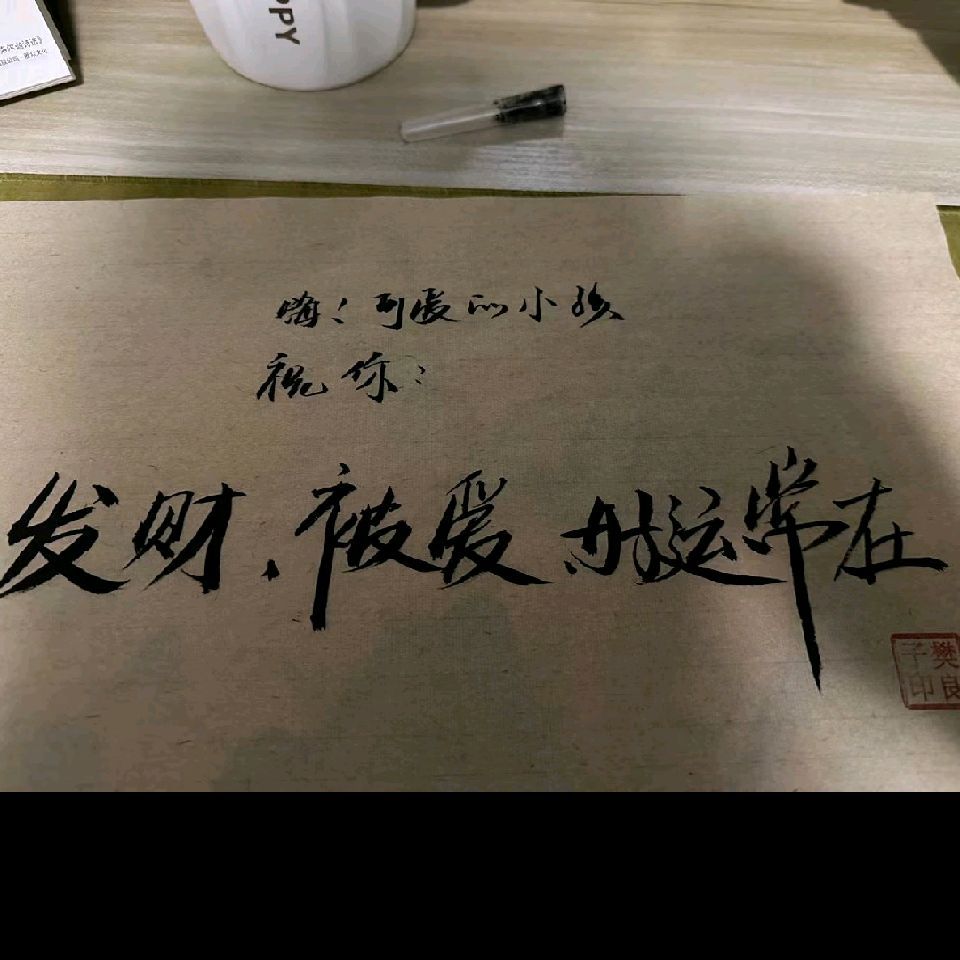 OPPY
嗨！可爱的小孩
祝你：
发财、被爱 好运常在
樊良
子印